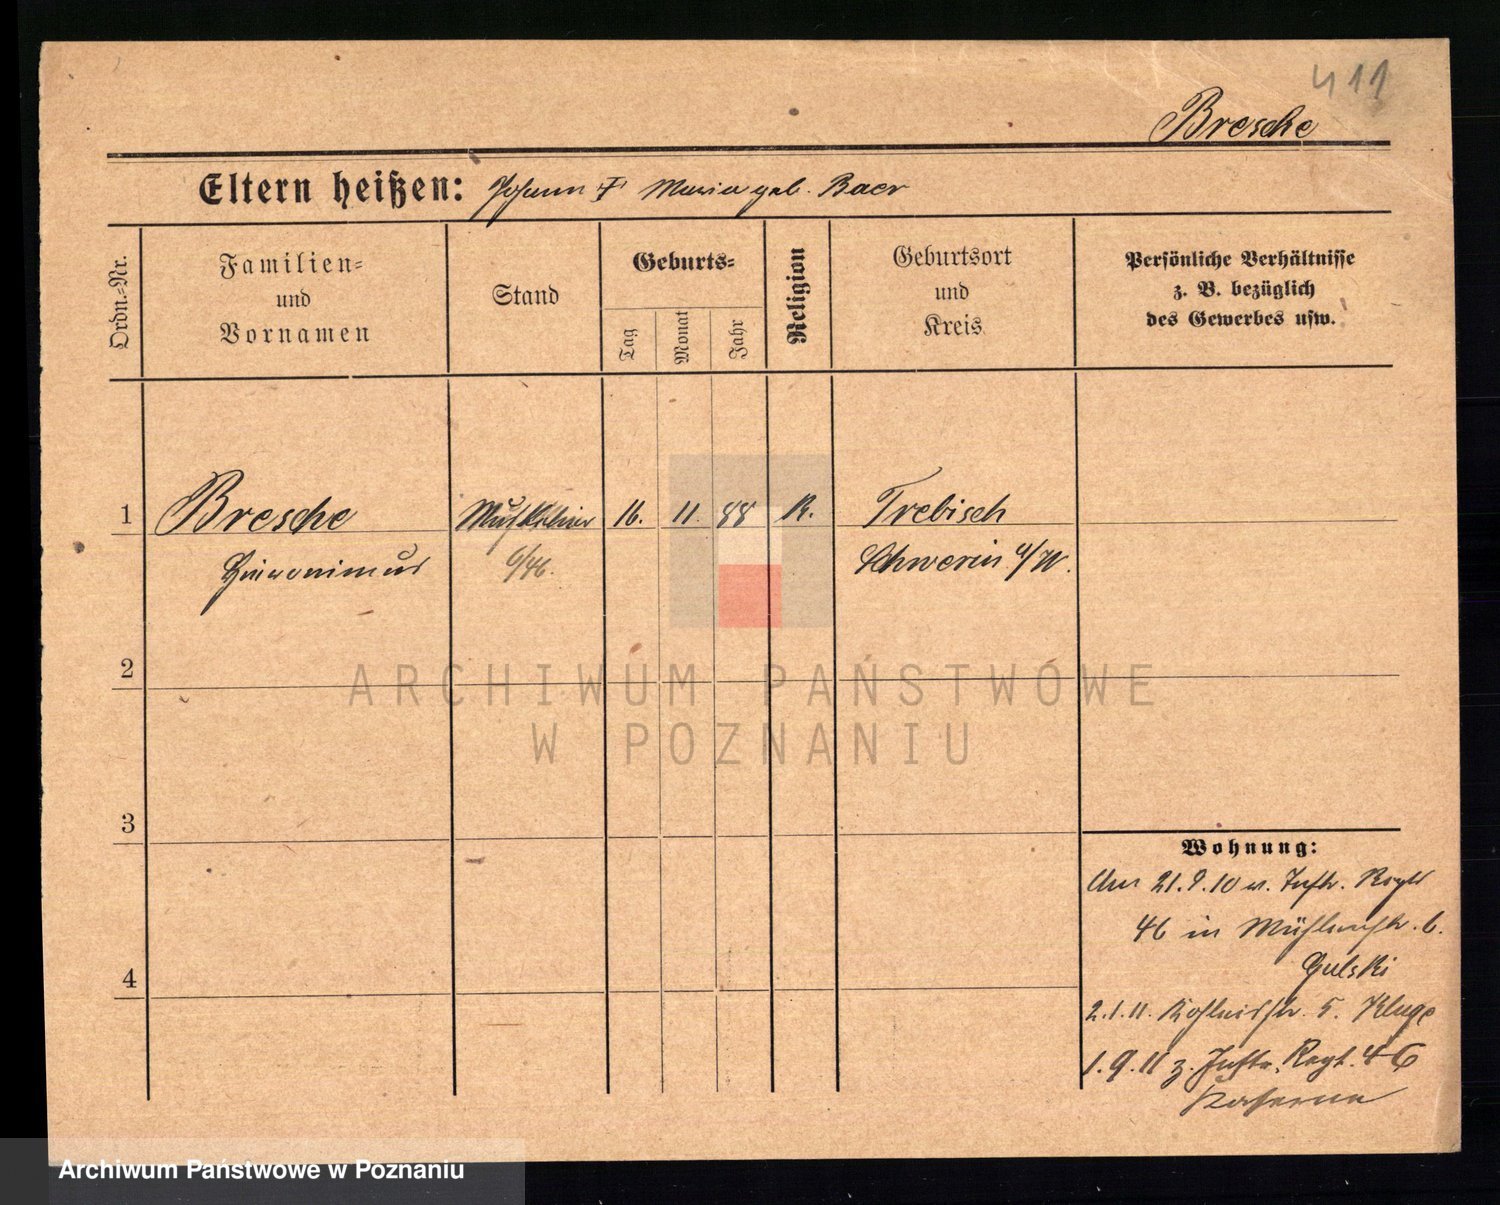 411
Bresche
Eltern heißen: Johann † Maria geb. Baer
Ordn.-Nr.
Familien-
und
Vornamen
Stand
Geburts-
Tag
Monat
Jahr
Religion
Geburtsort
und
Kreis
Persönliche Verhältnisse
z. B. bezüglich
des Gewerbes usw.
1 Bresche Musketier 16. 11. 88 K. Trebisch
Hieronimus 6/46. Schwerin a/W.
2
ARCHIWUM PAŃSTWOWE
W POZNANIU
3
Wohnung:
21.9.10 v. Inftr. Regt
46 in Mühlenstr. 6.
Gulski
4
2.1.11. 5. Kluge
1.9.11 z. Inftr. Regt. 46
Kaserne
Archiwum Państwowe w Poznaniu